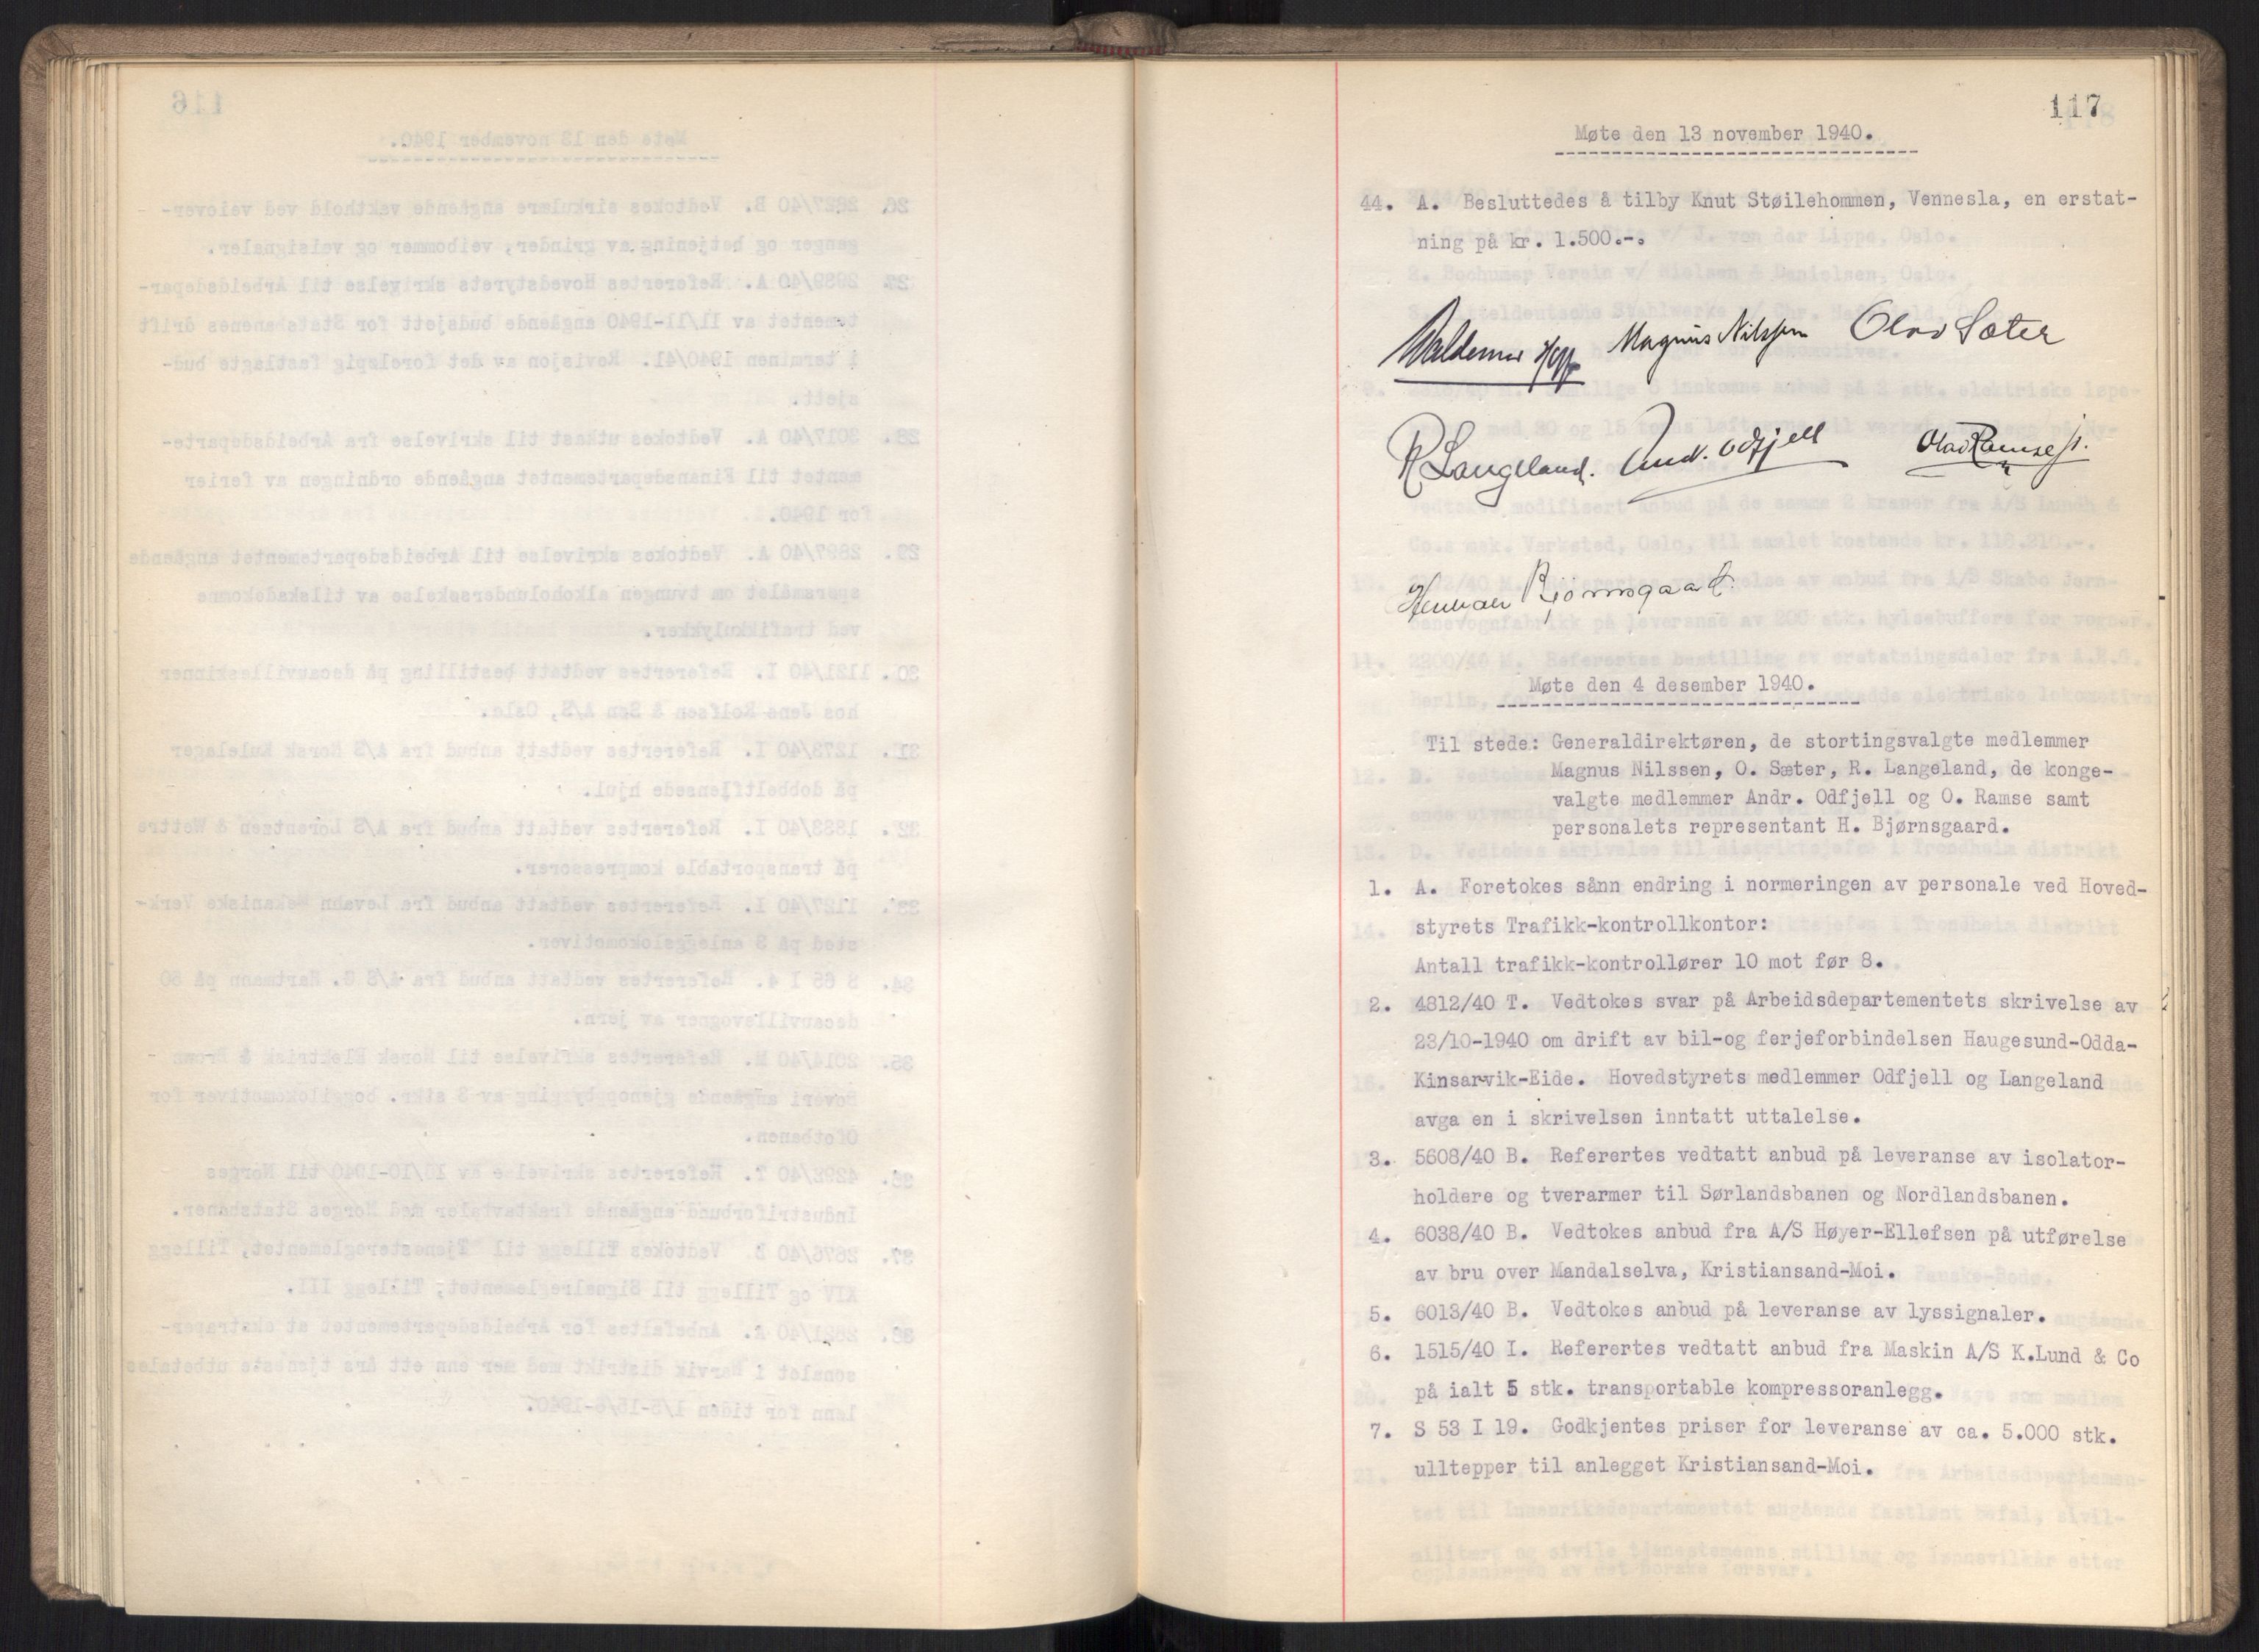 117
Møte den 13 november 1940.
44. A. Besluttedes å tilby Knut Støilehommen, Vennesla, en erstat-
ning på kr. 1.500.-.
Magnus Nilssen Olav Sæter
R Langeland. And. Odfjell Olav Ramse
Herman Bjørnsgaard.
Møte den 4 desember 1940.
Til stede: Generaldirektøren, de stortingsvalgte medlemmer
Magnus Nilssen, O. Sæter, R. Langeland, de konge-
valgte medlemmer Andr. Odfjell og O. Ramse samt
personalets representant H. Bjørnsgaard.
1. A. Foretokes sånn endring i normeringen av personale ved Hoved-
styrets Trafikk-kontrollkontor:
Antall trafikk-kontrollører 10 mot før 8.
2. 4812/40 T. Vedtokes svar på Arbeidsdepartementets skrivelse av
23/10-1940 om drift av bil-og ferjeforbindelsen Haugesund-Odda-
Kinsarvik-Eide. Hovedstyrets medlemmer Odfjell og Langeland
avga en i skrivelsen inntatt uttalelse.
3. 5608/40 B. Referertes vedtatt anbud på leveranse av isolator-
holdere og tverarmer til Sørlandsbanen og Nordlandsbanen.
4. 6038/40 B. Vedtokes anbud fra A/S Høyer-Ellefsen på utførelse
av bru over Mandalselva, Kristiansand-Moi.
5. 6013/40 B. Vedtokes anbud på leveranse av lyssignaler.
6. 1515/40 I. Referertes vedtatt anbud fra Maskin A/S K.Lund & Co
på ialt 5 stk. transportable kompressoranlegg.
7. S 53 I 19. Godkjentes priser for leveranse av ca. 5.000 stk.
ulltepper til anlegget Kristiansand-Moi.